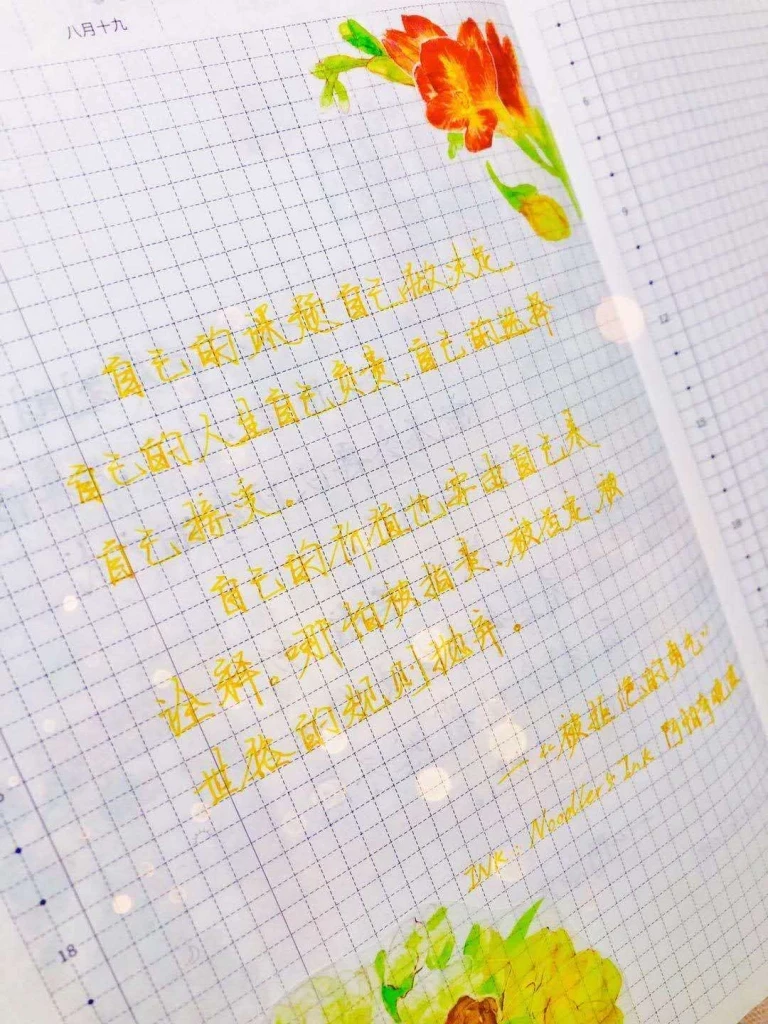 八月十九
自己的课题自己做决定
自己的人生自己负责.自己的选择
自己接受。
自己的价值也要由自己来
诠释。哪怕被指责、被否定、被
世俗的规则抛弃。
一《被拒绝的勇气》
INK: Noodler's Ink 阿帕奇晚霞
18
12